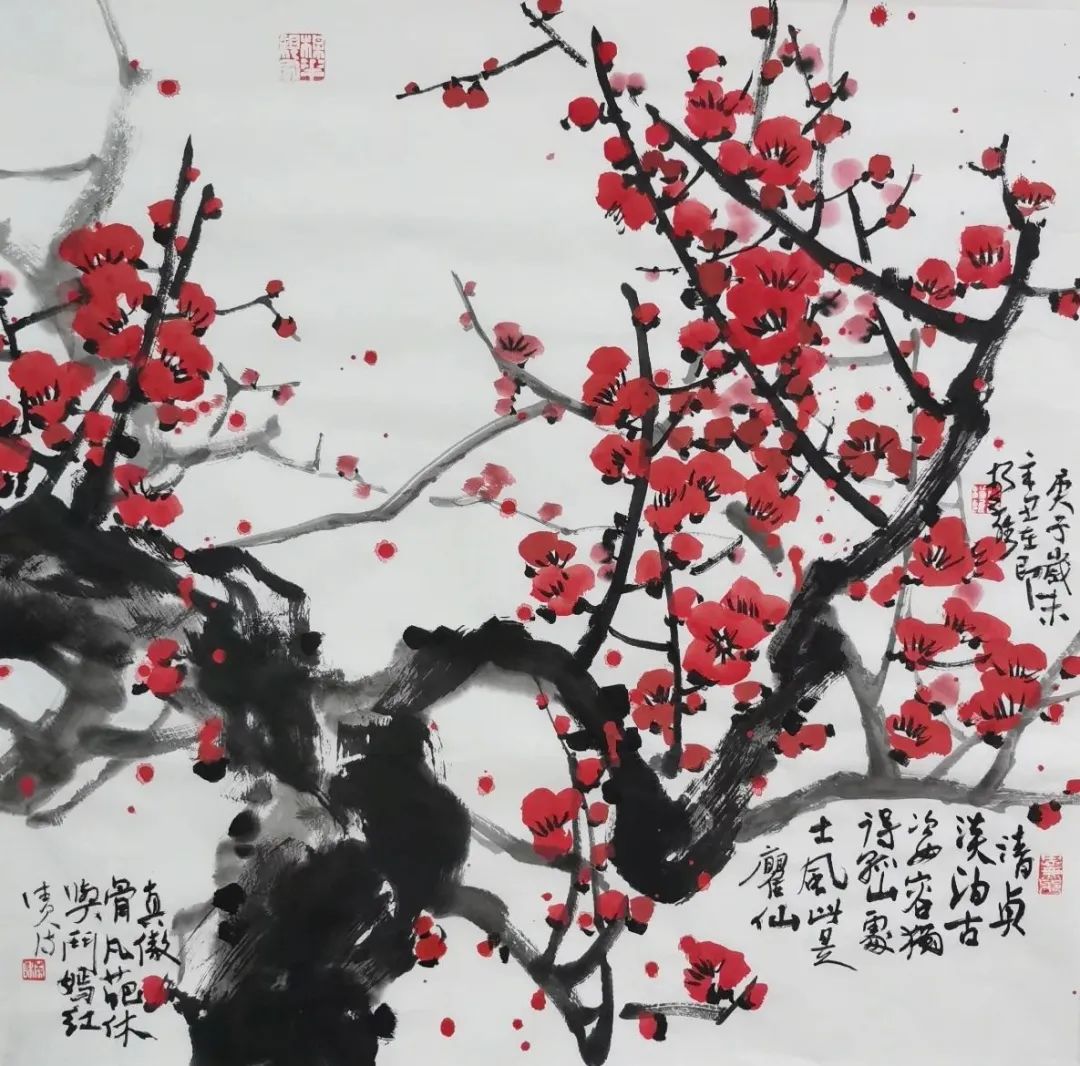 庚子歲末
辛丑在即
清貞
淡泊古
姿容獨
得孤山處
士風此是
癯仙
真傲
骨凡葩休
與鬥嫣紅